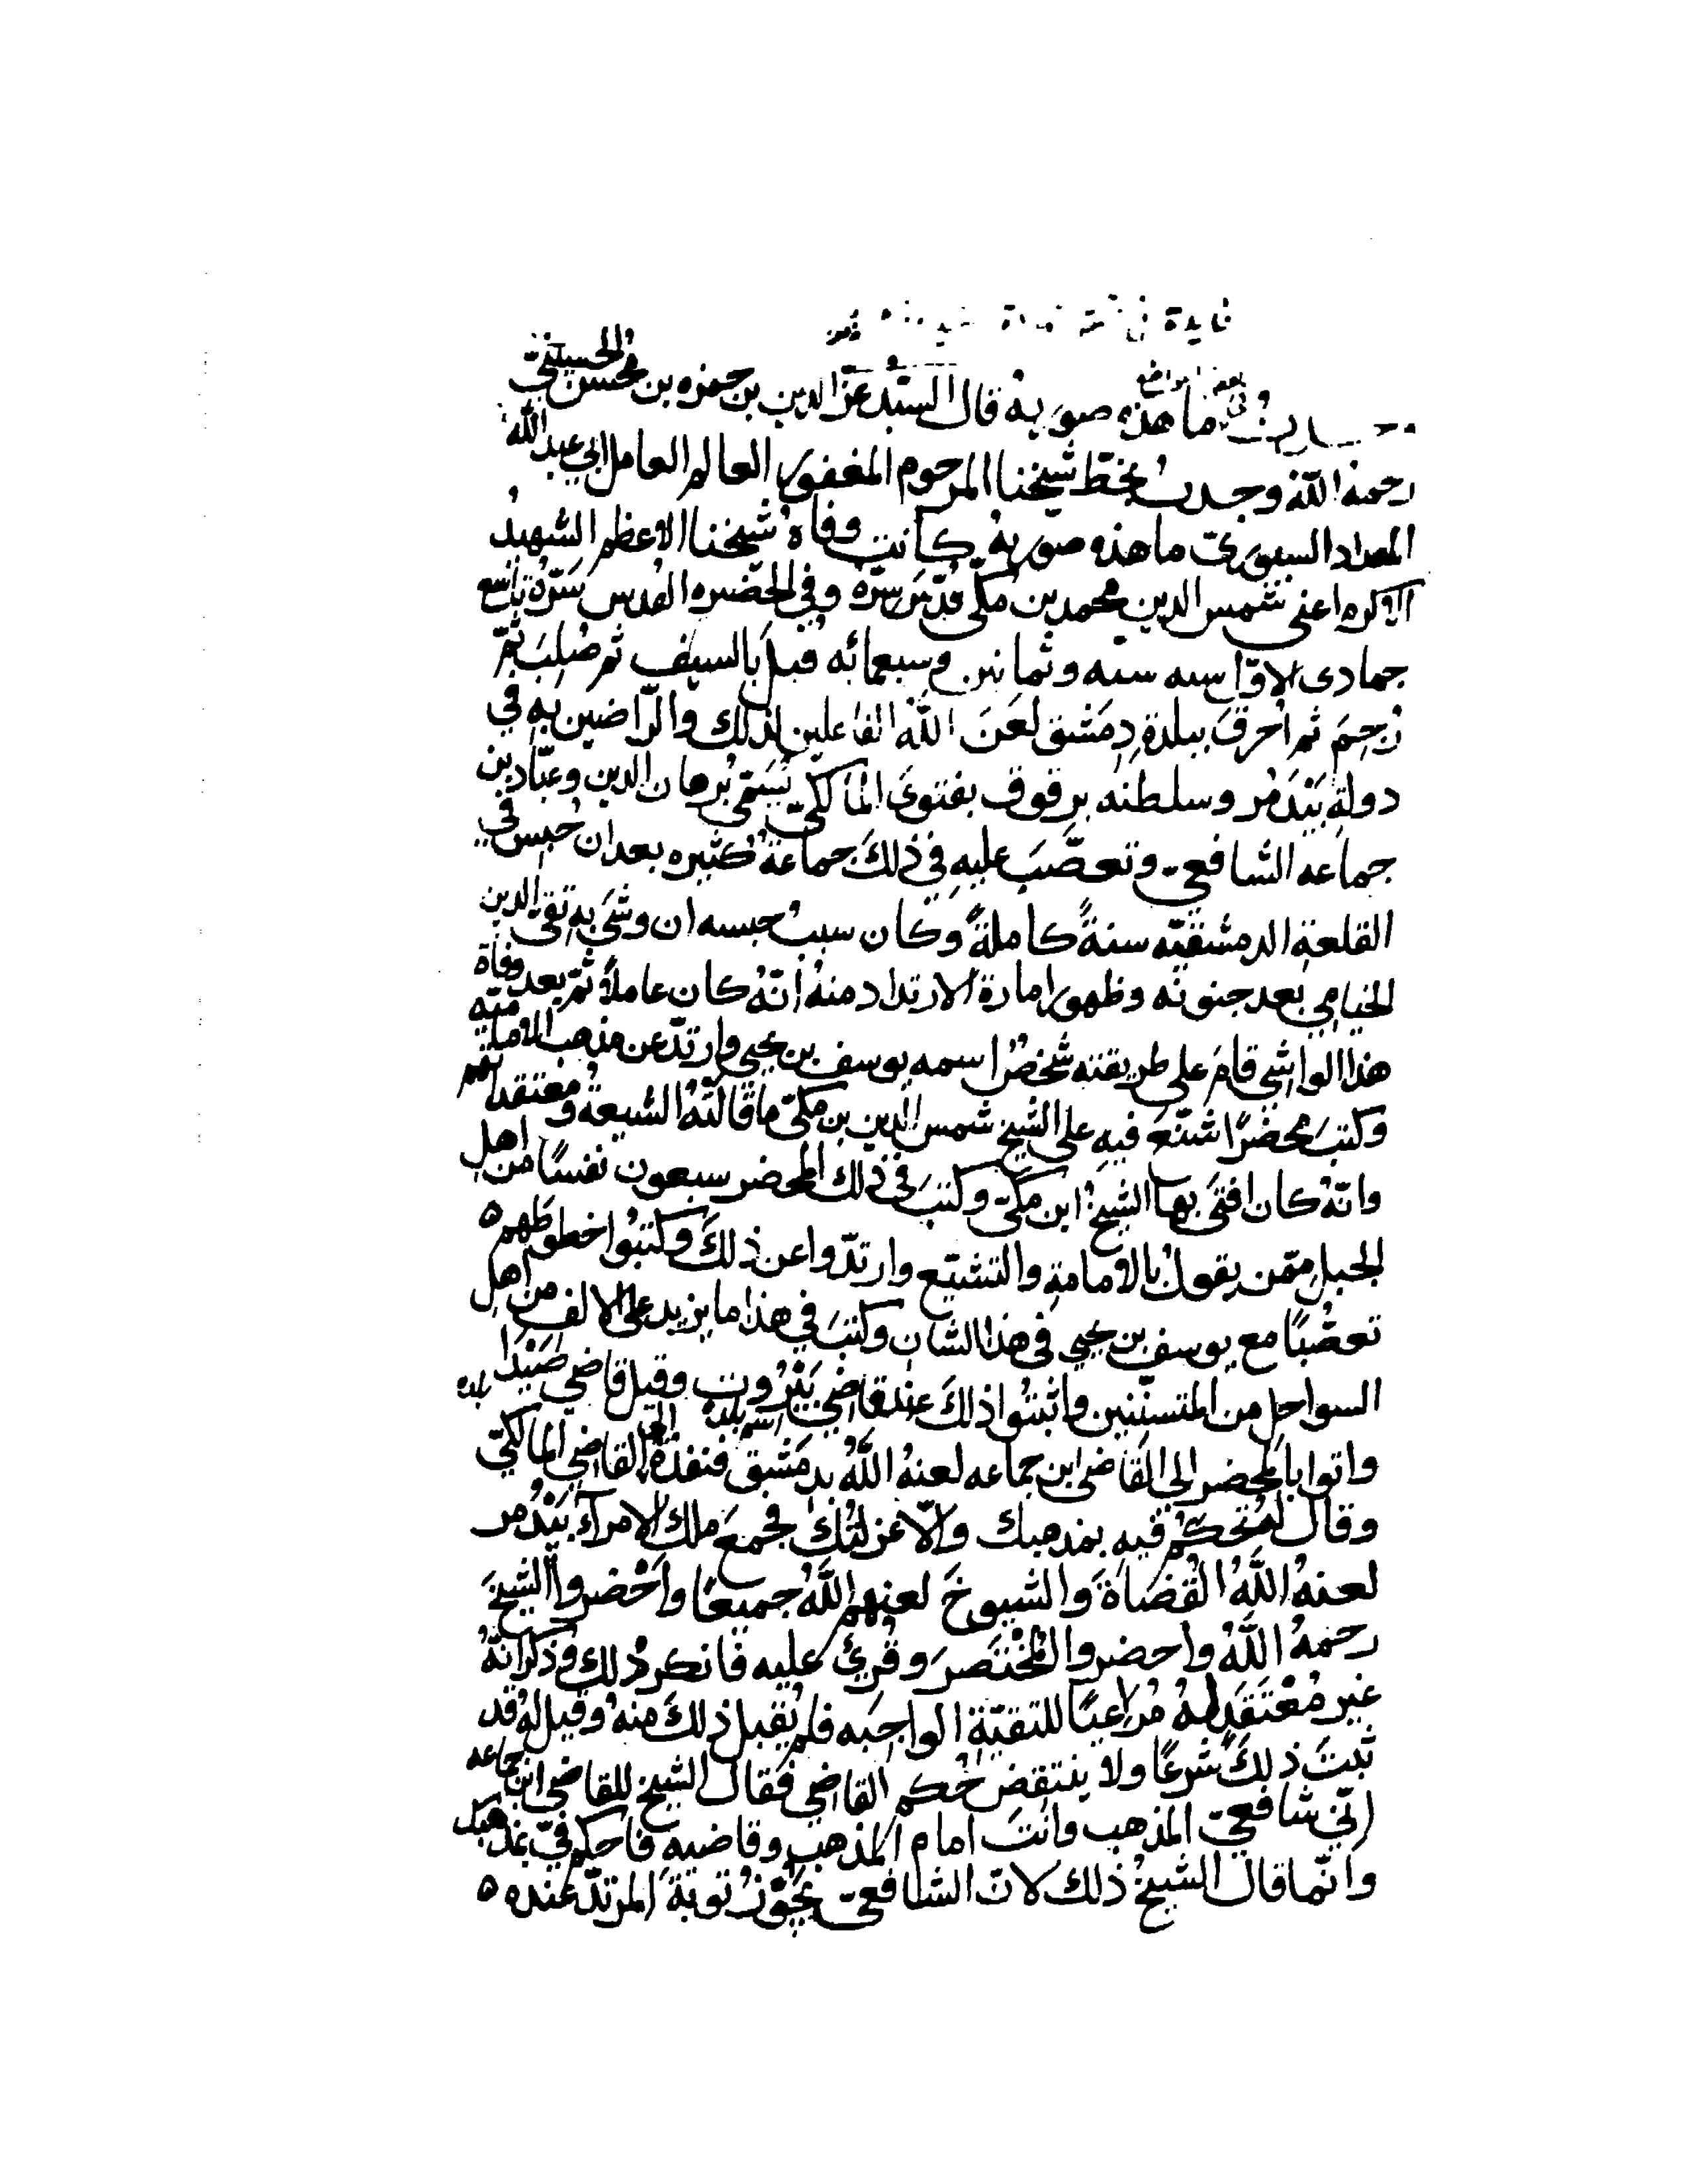 فايدة في
وجدت في بعض المواضع ما هذه صورته قال السيّد عزّ الدين بن حمزه بن محسن الحسيني
رحمه الله وجدت بخطّ شيخنا المرحوم المغفور العالم العامل ابي عبد الله
المقداد السيورىّ ما هذه صورته كانت وفاة شيخنا الاعظم الشهيد
الاكرم اعنى شمس الدين محمد بن مكّى قدّس سرّه وفي الحضيره القدس سرّه تاسع
جمادى الاوّل سنه ستة وثمانين وسبعمائه قتل بالسيف ثم صُلِبَ ثمّ
رُجِمَ ثم اُحرِقَ ببلدةِ دِمَشق لعَنَ اللّه الفاعلين لذلك والرّاضين به في
دولة بَيْدَمُر وسلطنه برقوق بفتوىَ المالكيّ يُسَمّى بُرهان الدين وعبّاد بن
جماعه الشافعي وتعصَّبَ عليهِ في ذلكَ جماعَةٌ كثيره بعد ان حُبِس في
القلعةِ الدمشقيّه سنةً كاملةً وكان سببُ حبسه ان وشَى به تقىّ الدين
الخيامي بعد جنونه وظهور امارة الارتداد منهُ انّهُ كان عاملاً ثمّ بعد وفاة
هذا الواشي قامَ على طريقته شخصٌ اسمه يوسف بن يحيى وارتدّ عن مذهب الاماميّه
وكتبَ محضرًا شنّعَ فيهِ على الشيخ شمس الدين بن مكىّ ما قالتْهُ الشيعة ومعتقداتهم
وانّهُ كان افتَى بها الشيخُ ابن مكّىّ وكتبَ في ذلك المحضر سبعون نفسًا من اهل
الجبلِ ممّن يقولُ بالامامةِ والتشيّع وارتدّوا عن ذلكَ وكتبُوا خطوطَهم ه
تعصُّبًا مع يوسف بن يحيى في هذا الشان وكتبَ في هذا ما يزيد على الالف من اهل
السواحل من المتسنّنين واثبتُوا ذلكَ عِندَ قاضي بَيْرُوت وقيل قاضي صَيْدَا
اسم بلدة بلدة
واتوا بالمحضر الى القاضى ابن جماعه لعنهُ اللّهُ بدِمَشق فنفذهُ الى القاضي المالكيّ
وقال له تحكمُ فيهِ بمذهبك والّا عزلتُكَ فجمعَ ملك الامرآء بَيْدُمر
لعنهُ اللّهُ القُضاةَ والشيوخَ لعنهم اللّهُ جميعًا واَحْضروا الشيخَ
رحمهُ اللّهُ واحضروا المحْضَرَ وقُرِئ عليه فانكر ذلك وذكر انّهُ
غير مُعْتَقَدٍ لهُ مُراعيًا للتقيّةِ الواجبَه فلم يُقبل ذلكَ منهُ وقيل له قد
ثبتَ ذلكَ شرعًا ولا ينتقضُ حُكم القاضي فقال الشيخ للقاضي ابن جماعه
اِنّي شافعيّ المذهب وانتَ امام المذهب وقاضيه فاحكم فيّ بمذهبك
وانّما قال الشيخُ ذلك لانّ الشافعىّ يجوّزُ توبَةَ المرتدّ عنده ه